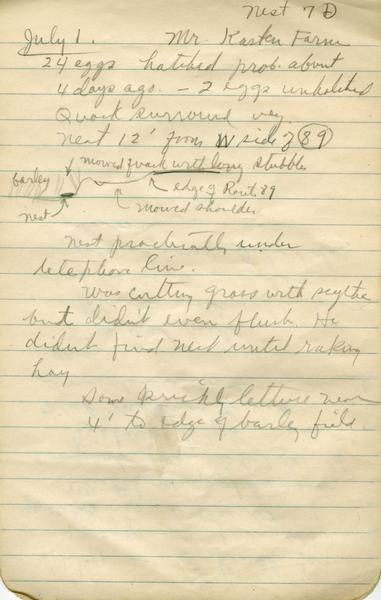 Nest 7 D
July 1. Mr. Kasten Farm
24 eggs hatched prob. about
4 days ago. - 2 eggs unhatched
Quack surround veg.
Nest 12' from W side of 89
mowed quack with long stubble
barley
edge of Rout. 89
nest
mowed shoulder
nest practically under
telephone line.
Was cutting grass with scythe
but didn't even flush. He
didn't find nest until raking
hay
Some prickly lettuce near
4' to edge of barley field.